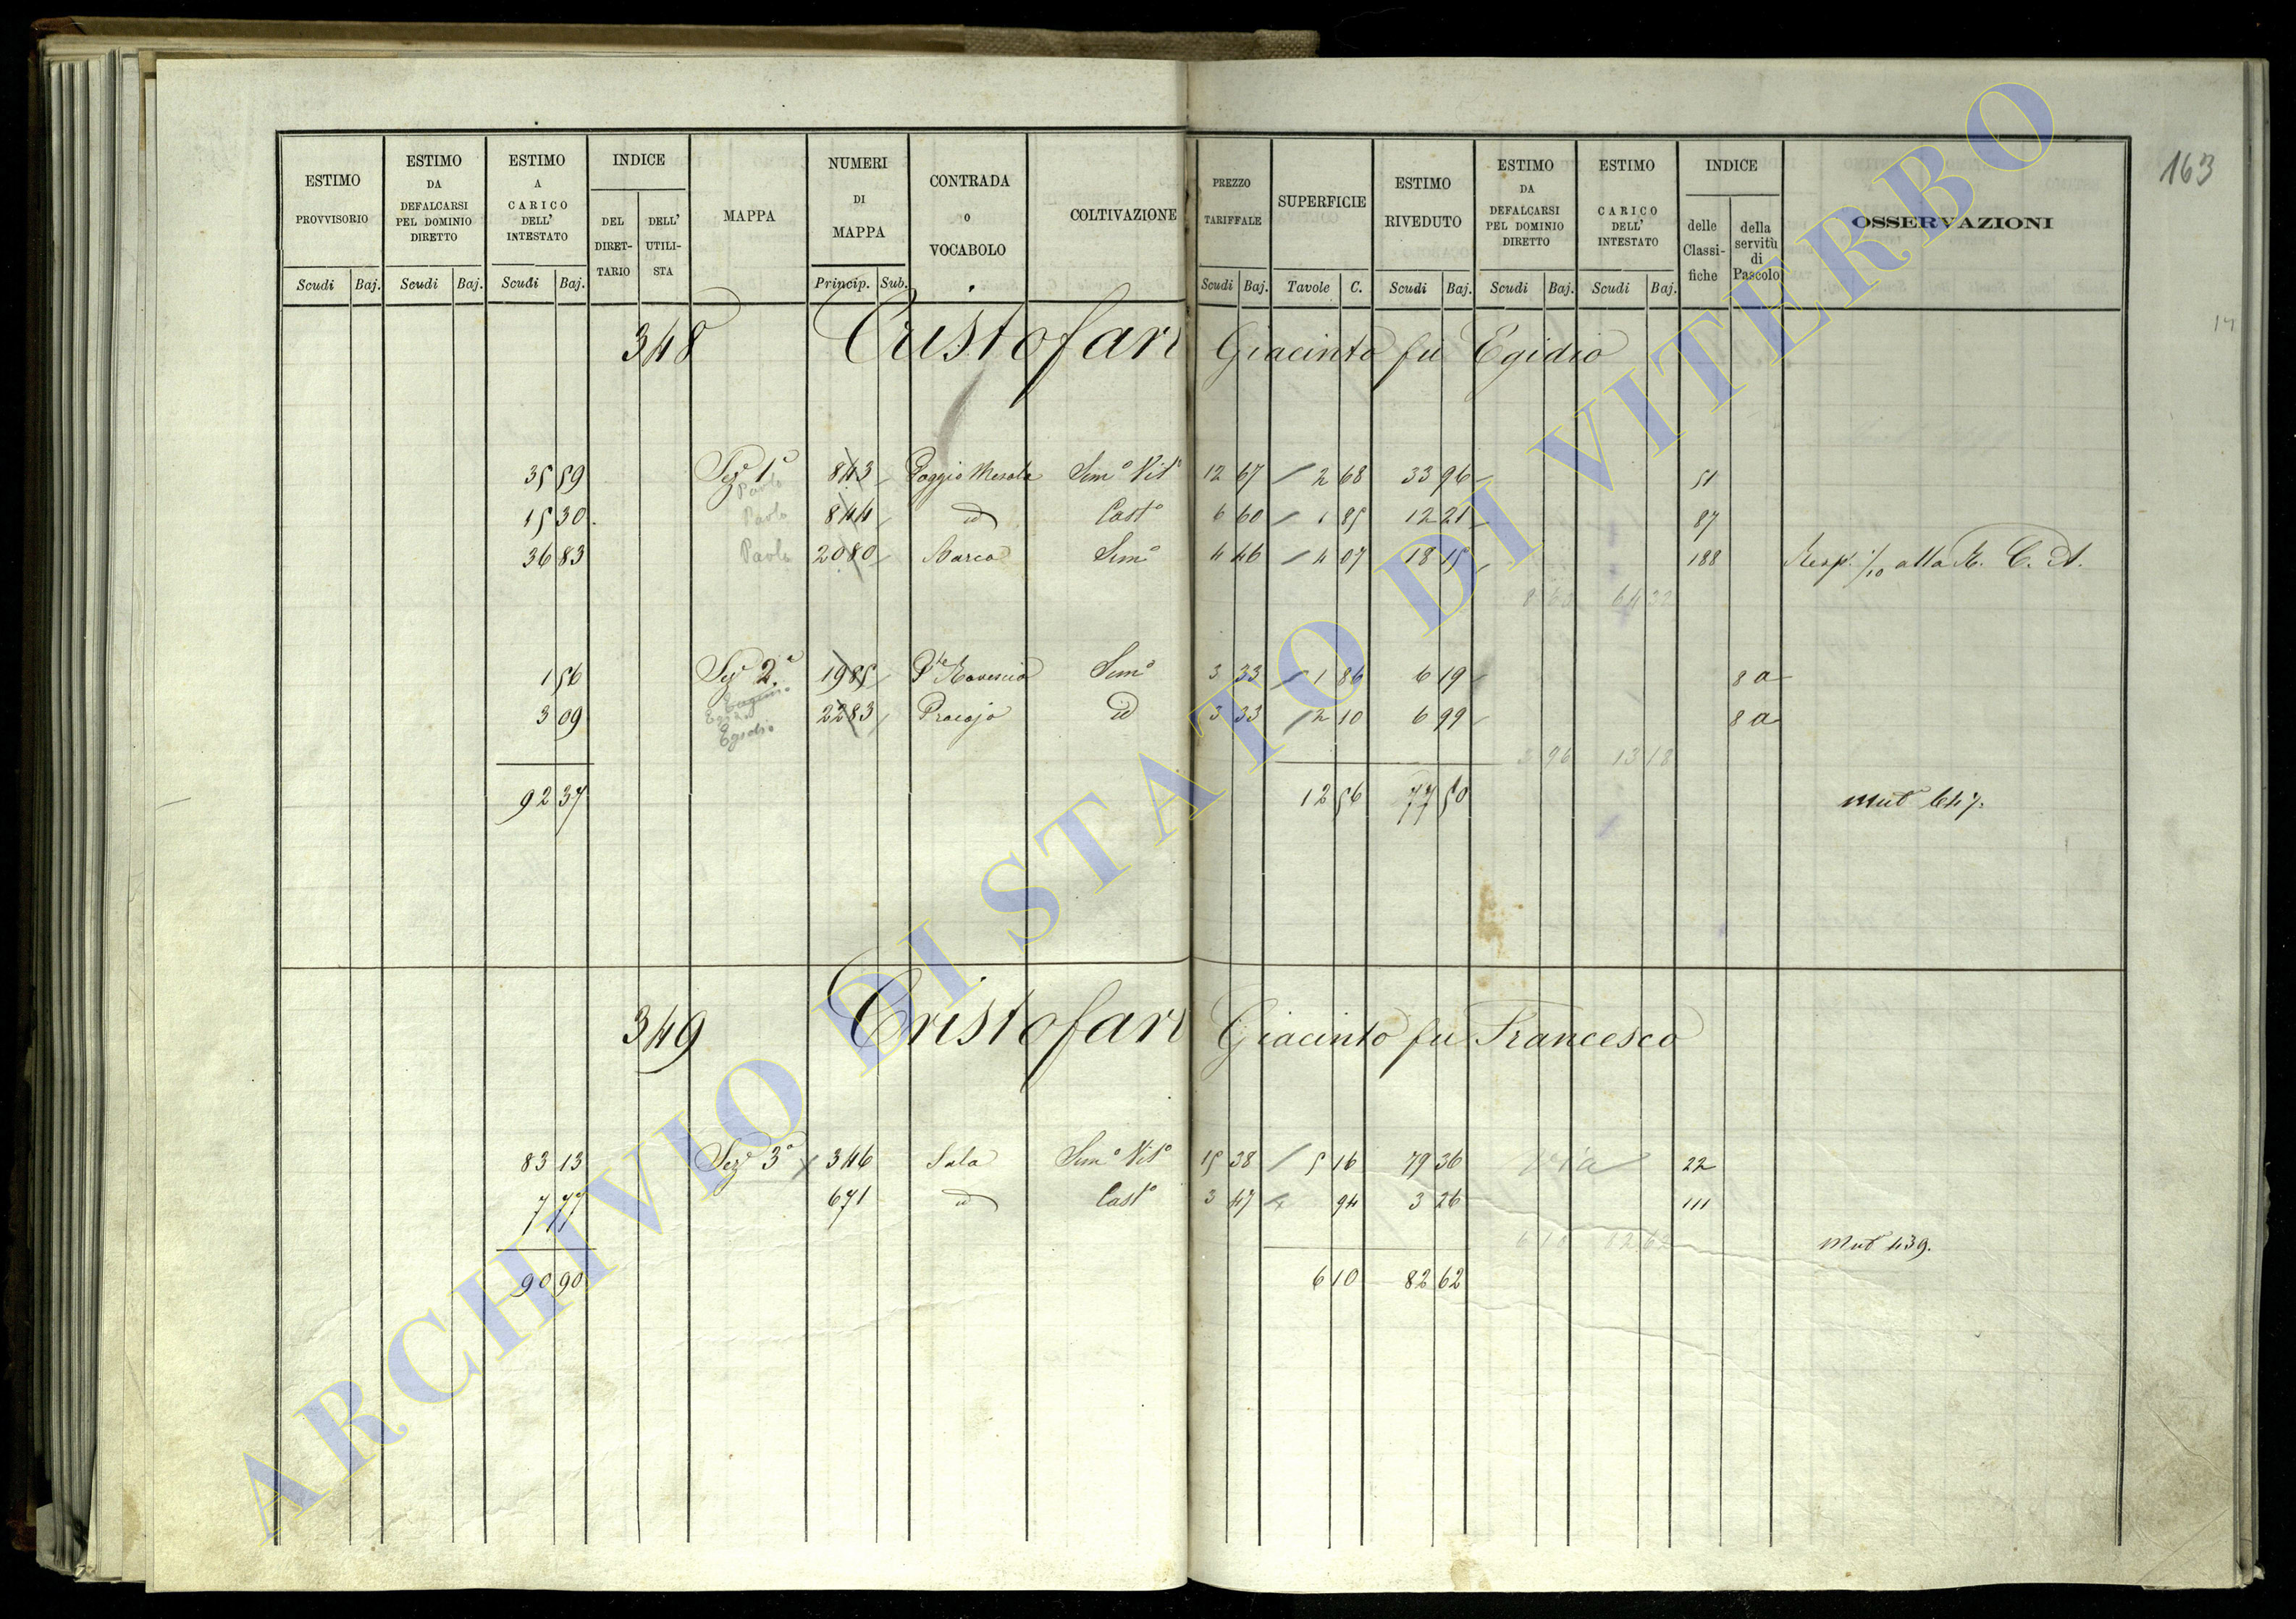 163
ESTIMO PROVVISORIO Scudi Baj.
ESTIMO DA DEFALCARSI PEL DOMINIO DIRETTO Scudi Baj.
ESTIMO A CARICO DELL' INTESTATO Scudi Baj.
INDICE DEL DIRETTARIO DELL' UTILISTA
MAPPA
NUMERI DI MAPPA Princip. Sub.
CONTRADA O VOCABOLO
COLTIVAZIONE
PREZZO TARIFFALE Scudi Baj.
SUPERFICIE Tavole C.
ESTIMO RIVEDUTO Scudi Baj.
ESTIMO DA DEFALCARSI PEL DOMINIO DIRETTO Scudi Baj.
ESTIMO CARICO DELL' INTESTATO Scudi Baj.
INDICE delle Classifiche della servitù di Pascolo
OSSERVAZIONI
348 Cristofari Giacinto fu Egidio
35 59 Sez. 1a 843 Poggio Merola Sem.o Vit.o 12 67 2 68 33 96 51
Paolo
15 30 Paolo 844 id Cast.o 6 60 1 85 12 21 87
36 83 Paolo 2080 Marco Sem.o 4 46 4 07 18 15 188 Risp. 1/10 alla R. C. A.
8 63 64 32
1 56 Sez. 2a 1985 P.te Rovescio Sem.o 3 33 1 86 6 19 8 a
3 09 Egidio 2283 Procojo id 3 33 2 10 6 99 8 a
Egidio
3 96 13 18
92 37 12 56 77 50 Mut. 647.
349 Cristofari Giacinto fu Francesco
83 13 Sez. 3a 346 Sala Sem.o Vit.o 15 38 5 16 79 36 22
7 77 671 id Cast.o 3 47 94 3 26 111
6 10 82 62 Mut. 439.
90 90 6 10 82 62
ARCHIVIO DI STATO DI VITERBO